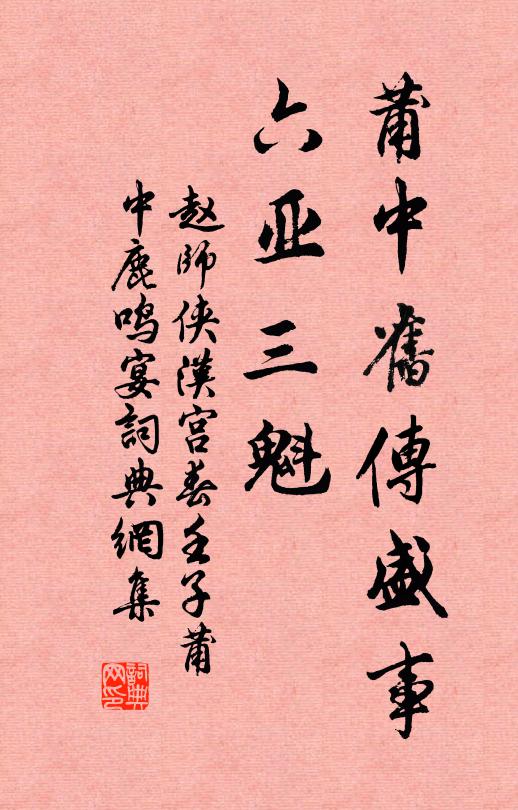 莆中舊傳盛事
六亚三魁
赵師侠漢宫春壬子莆
中鹿鸣宴詞典網集
詞典网印